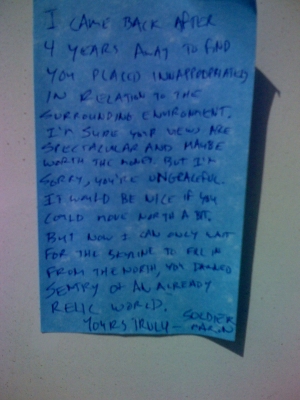 I CAME BACK AFTER
4 YEARS AWAY TO FIND
YOU PLACED INNAPPROPRIATELY
IN RELATION TO THE
SURROUNDING ENVIRONMENT.
I'M SURE YOUR VIEWS ARE
SPECTACULAR AND MAYBE
WORTH THE MONEY. BUT I'M
SORRY, YOU'RE UNGRACEFUL.
IT WOULD BE NICE IF YOU
COULD MOVE NORTH A BIT.
BUT NOW I CAN ONLY WAIT
FOR THE SKYLINE TO FILL IN
FROM THE NORTH, YOU DAMNED
SENTRY OF AN ALREADY
RELIC WORLD.
YOURS TRULY — SOLDIER